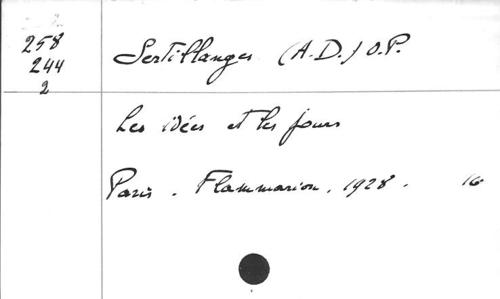 258
244
2
Sertillanges (A-D.) O.P.
Les idées et les jours
Paris. Flammarion. 1928. 16